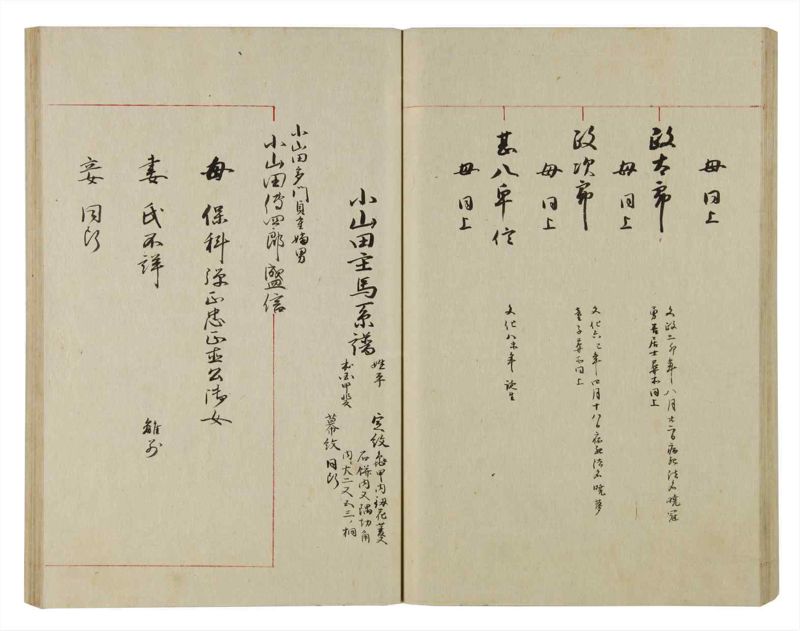 母同上
政太郎
母同上
文政二卯年八月廿一日病死法名暁冠
勇吉居士葬不同上
政次郎
母同上
文化六巳年四月十八日病死法名暁夢
童子葬不同上
甚八平信
母同上
文化八未年誕生
小山田主馬系譜
姓平
本国甲斐
定紋
亀甲内
石餅内
内
幕紋同断
小山田多門貞重嫡男
小山田傳四郎盛信
母保科弾正忠正直公御女
妻氏不詳
離別
妾同断